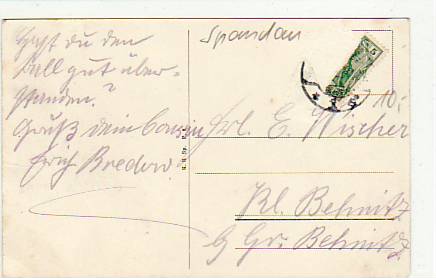 Hast du den
Ball gut über-
standen?
Gruß dein Cousin
Erich Bredow.
Spandau
10,-
Frl. E. Wischer
Kl. Behnitz
b Gr. Behnitz